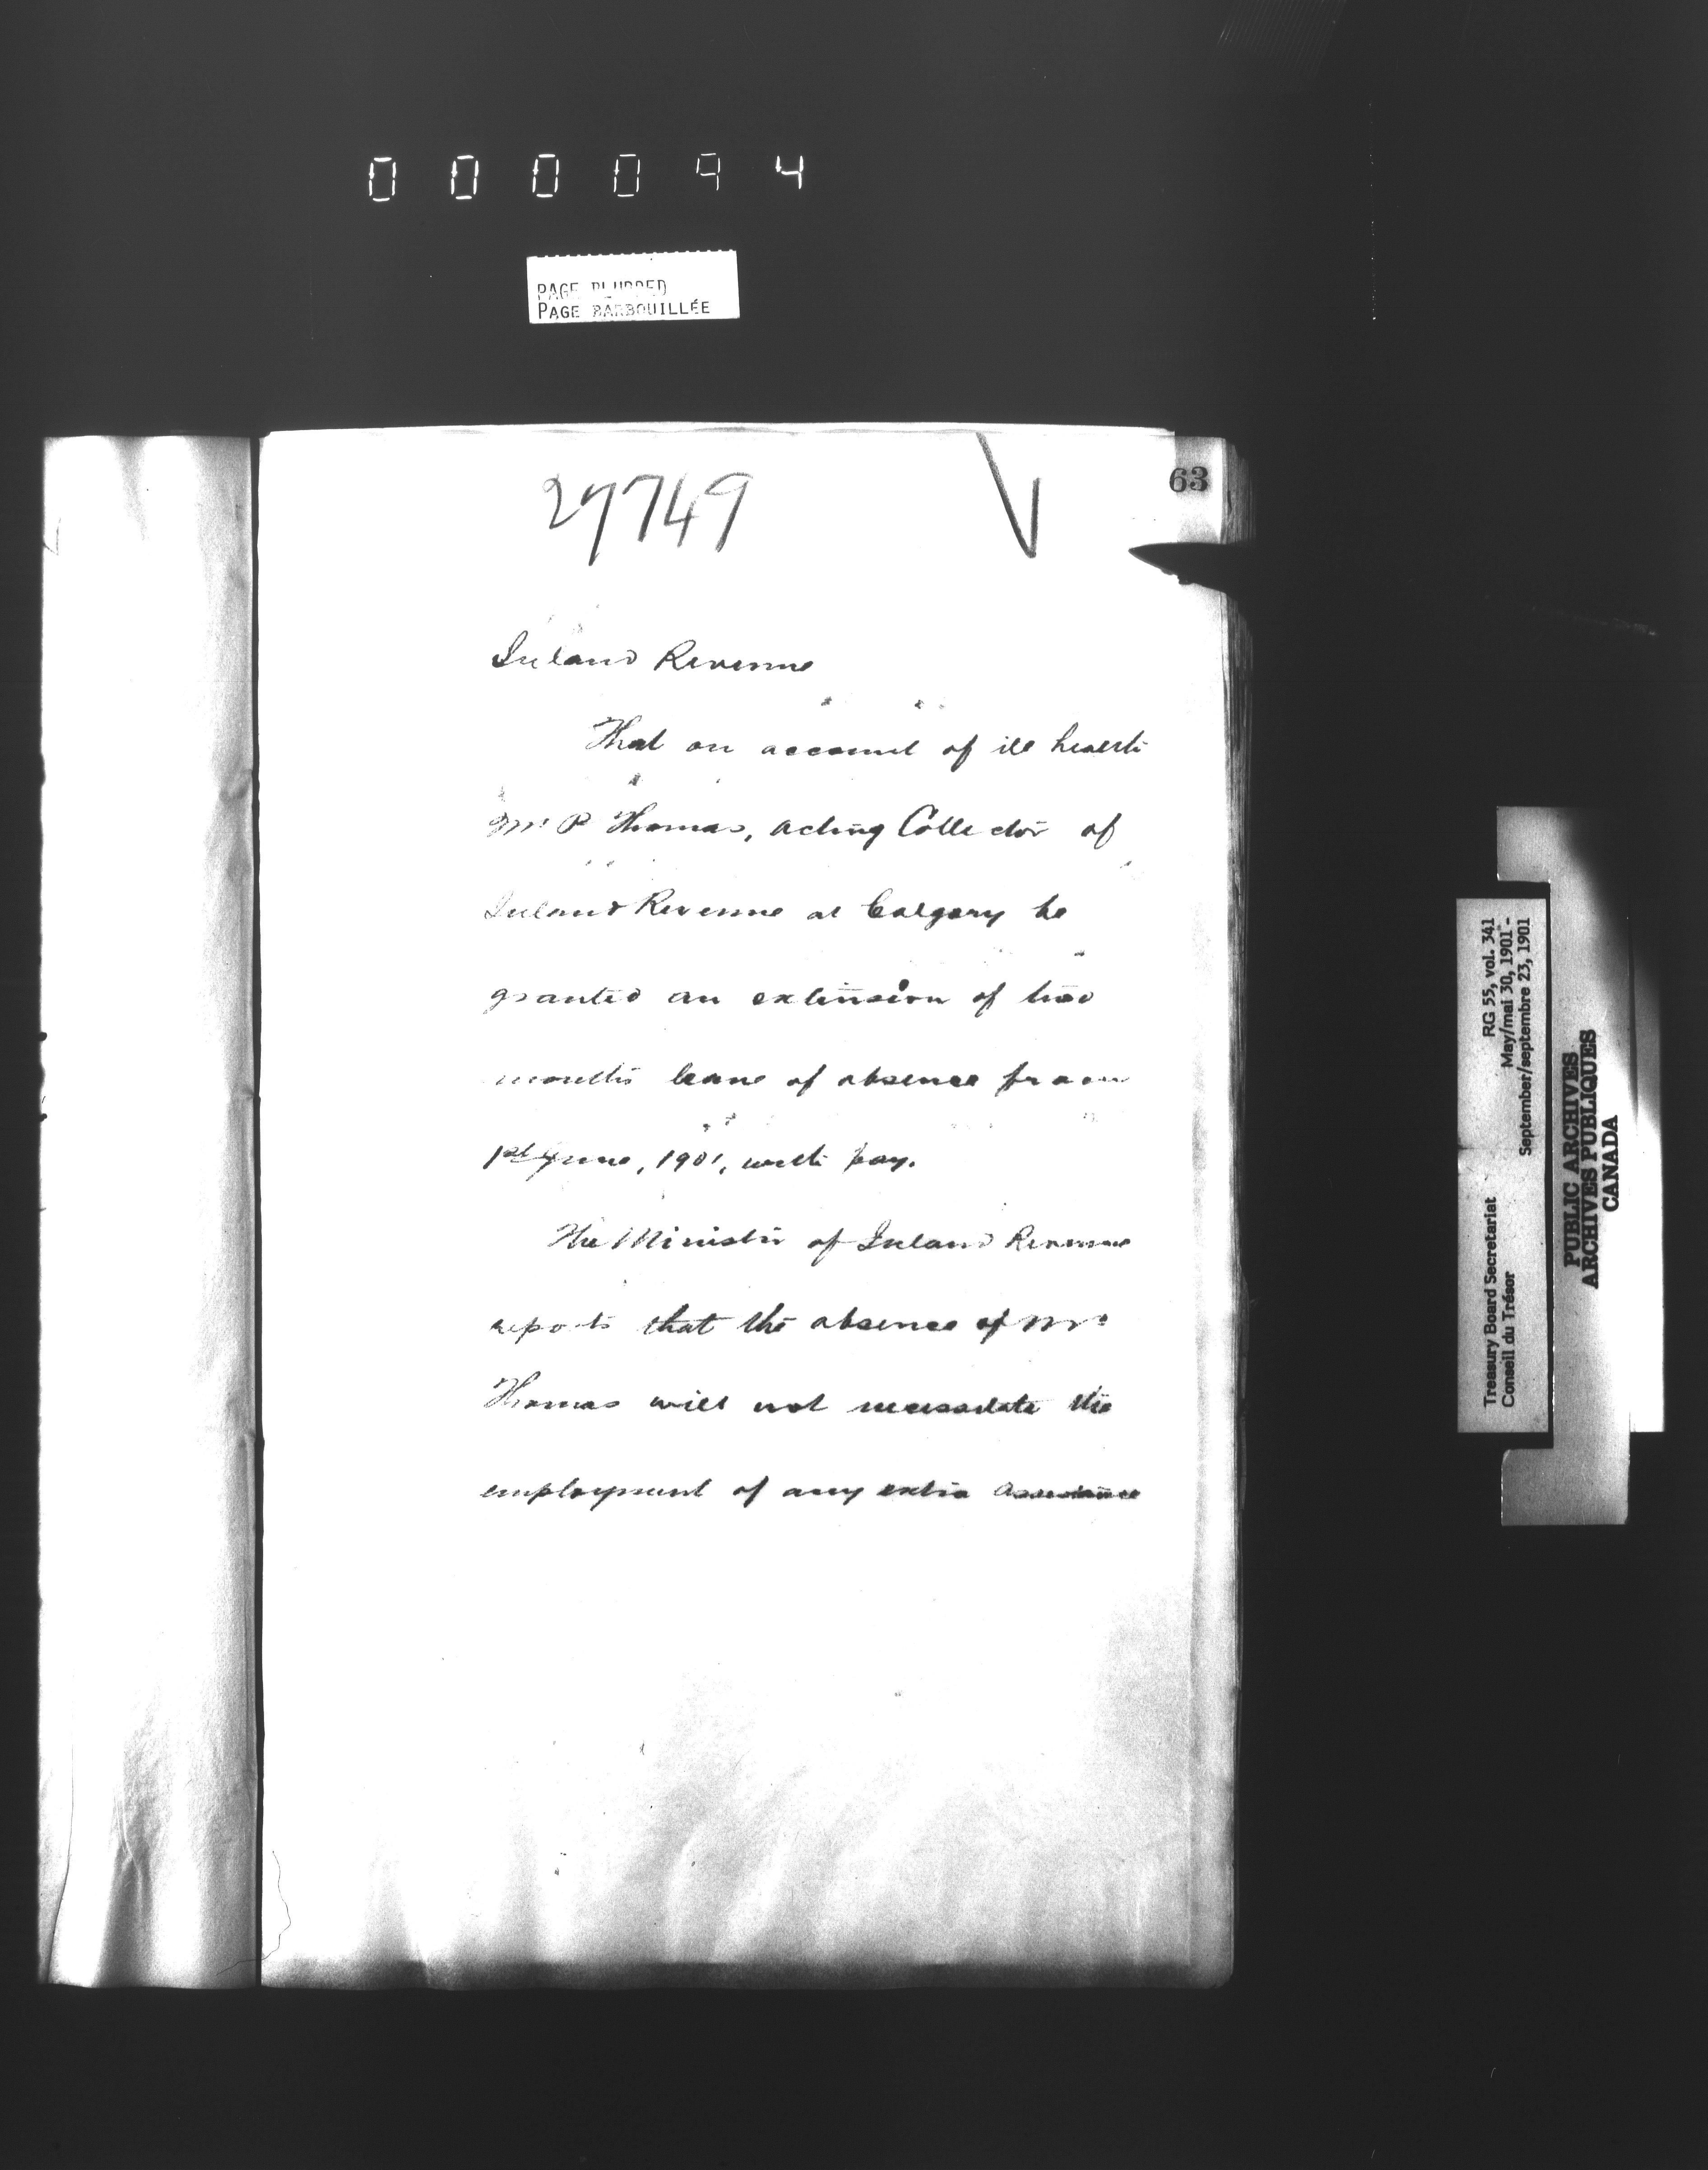 000094
PAGE BLURRED
PAGE BARBOUILLÉE
63
27749
Inland Revenue
That on account of ill health
Mr P Thomas, acting Collector of
Inland Revenue at Calgary be
granted an extension of two
months leave of absence from
1st June, 1901, with pay.
The Minister of Inland Revenue
reports that the absence of Mr
Thomas will not necessitate the
employment of any extra assistance
Treasury Board Secretariat RG 55, vol. 341
Conseil du Trésor May/mai 30, 1901 -
September/septembre 23, 1901
PUBLIC ARCHIVES
ARCHIVES PUBLIQUES
CANADA